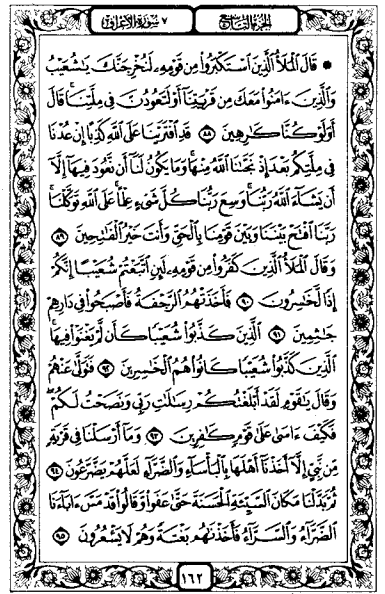 الجزء التاسع
٧ سورة الأعراف
۞ قَالَ ٱلۡمَلَأُ ٱلَّذِينَ ٱسۡتَكۡبَرُواْ مِن قَوۡمِهِۦ لَنُخۡرِجَنَّكَ يَٰشُعَيۡبُ
وَٱلَّذِينَ ءَامَنُواْ مَعَكَ مِن قَرۡيَتِنَآ أَوۡ لَتَعُودُنَّ فِي مِلَّتِنَاۚ قَالَ
أَوَلَوۡ كُنَّا كَٰرِهِينَ ٨٨ قَدِ ٱفۡتَرَيۡنَا عَلَى ٱللَّهِ كَذِبًا إِنۡ عُدۡنَا
فِي مِلَّتِكُم بَعۡدَ إِذۡ نَجَّىٰنَا ٱللَّهُ مِنۡهَاۚ وَمَا يَكُونُ لَنَآ أَن نَّعُودَ فِيهَآ إِلَّآ
أَن يَشَآءَ ٱللَّهُ رَبُّنَاۚ وَسِعَ رَبُّنَا كُلَّ شَيۡءٍ عِلۡمًاۚ عَلَى ٱللَّهِ تَوَكَّلۡنَاۚ
رَبَّنَا ٱفۡتَحۡ بَيۡنَنَا وَبَيۡنَ قَوۡمِنَا بِٱلۡحَقِّ وَأَنتَ خَيۡرُ ٱلۡفَٰتِحِينَ ٨٩
وَقَالَ ٱلۡمَلَأُ ٱلَّذِينَ كَفَرُواْ مِن قَوۡمِهِۦ لَئِنِ ٱتَّبَعۡتُمۡ شُعَيۡبًا إِنَّكُمۡ
إِذٗا لَّخَٰسِرُونَ ٩٠ فَأَخَذَتۡهُمُ ٱلرَّجۡفَةُ فَأَصۡبَحُواْ فِي دَارِهِمۡ
جَٰثِمِينَ ٩١ ٱلَّذِينَ كَذَّبُواْ شُعَيۡبٗا كَأَن لَّمۡ يَغۡنَوۡاْ فِيهَاۚ
ٱلَّذِينَ كَذَّبُواْ شُعَيۡبٗا كَانُواْ هُمُ ٱلۡخَٰسِرِينَ ٩٢ فَتَوَلَّىٰ عَنۡهُمۡ
وَقَالَ يَٰقَوۡمِ لَقَدۡ أَبۡلَغۡتُكُمۡ رِسَٰلَٰتِ رَبِّي وَنَصَحۡتُ لَكُمۡۖ
فَكَيۡفَ ءَاسَىٰ عَلَىٰ قَوۡمٖ كَٰفِرِينَ ٩٣ وَمَآ أَرۡسَلۡنَا فِي قَرۡيَةٖ
مِّن نَّبِيٍّ إِلَّآ أَخَذۡنَآ أَهۡلَهَا بِٱلۡبَأۡسَآءِ وَٱلضَّرَّآءِ لَعَلَّهُمۡ يَضَّرَّعُونَ ٩٤
ثُمَّ بَدَّلۡنَا مَكَانَ ٱلسَّيِّئَةِ ٱلۡحَسَنَةَ حَتَّىٰ عَفَواْ وَّقَالُواْ قَدۡ مَسَّ ءَابَآءَنَا
ٱلضَّرَّآءُ وَٱلسَّرَّآءُ فَأَخَذۡنَٰهُم بَغۡتَةٗ وَهُمۡ لَا يَشۡعُرُونَ ٩٥
١٦٢